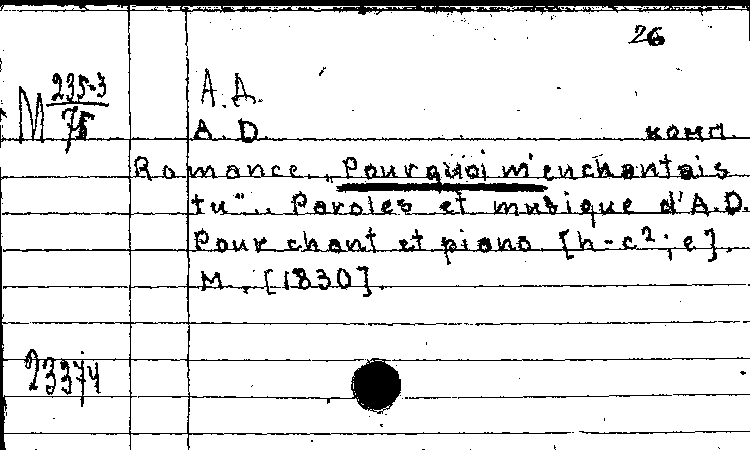 26
М 235-3/75
А.Д.
A.D. комп.
Romance.. „Pourquoi m'enchantais
tu".. Paroles et musique d'A.D.
Pour chant et piano [h-c²; e].
М., [1830].
23374